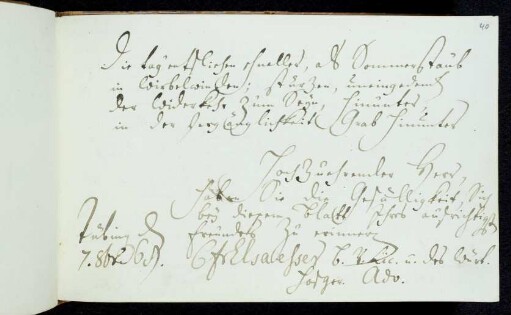 40
Die Tage entfliehen schneller, als Sommerstaub
in Wirbelwinden; stürzen, uneingedenk
der Widerkehr zum Seyn, hinunter,
in der Vergänglichkeit Grab hinunter
Hochzuehrender Herr,
haben Sie die Gefälligkeit, Sich
bey diesem Blatt Ihres aufrichtigen
Freundes zu erinnern
Tübing. d.
7. 8br.
CF Elsaesser b. R. Lic. u. des Würt.
Hofger. Adv.